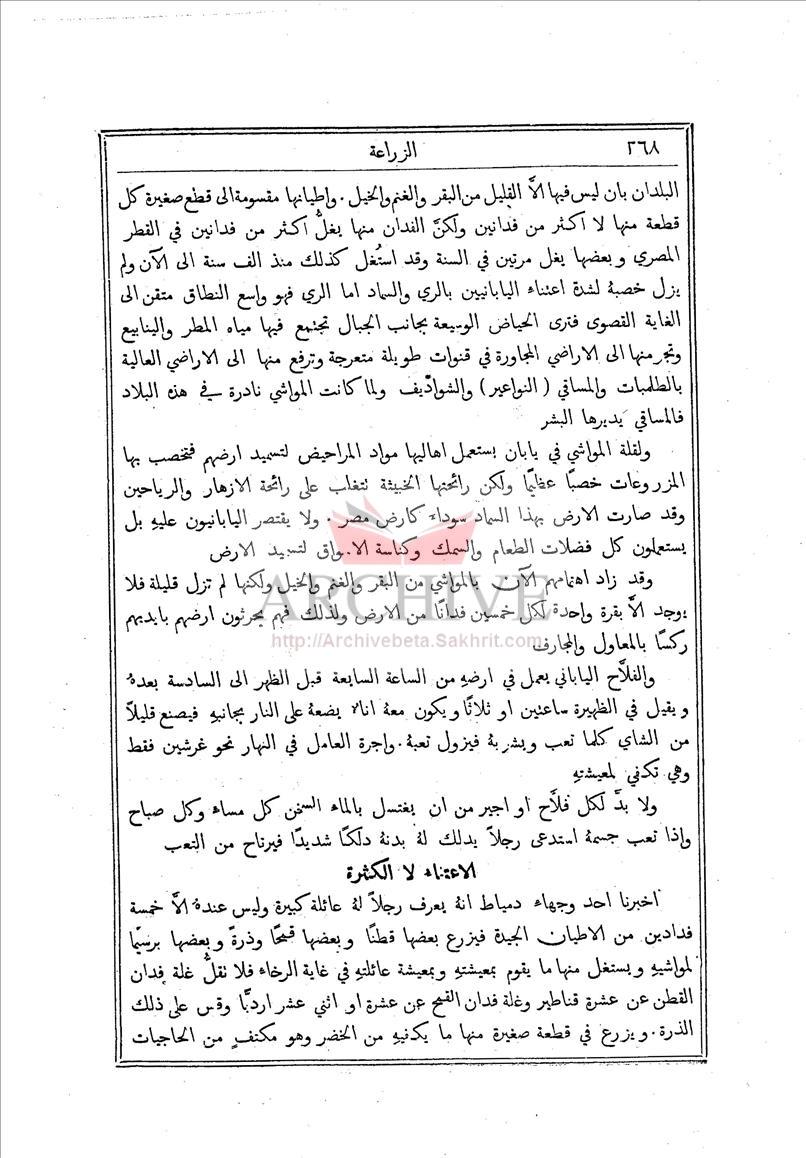 ٢٦٨
الزراعة
البلدان بان ليس فيها الاَّ القليل من البقر والغنم والخيل . واطيانها مقسومة الى قطع صغيرة كل
قطعة منها لا اكثر من فدانين ولكنَّ الفدان منها يغلُّ اكثر من فدانين في القطر
المصري وبعضها يغل مرتين في السنة وقد استُغل كذلك منذ الف سنة الى الآن ولم
يزل خصبهُ لشدة اعتناء اليابانيين بالري والسماد اما الري فهو واسع النطاق متقن الى
الغاية القصوى فترى الحياض الوسيعة بجانب الجبال تجتمع فيها مياه المطر والينابيع
وتجر منها الى الاراضي المجاورة في قنوات طويلة متعرجة وترفع منها الى الاراضي العالية
بالطلمبات والمساقي ( النواعير ) والشواديف ولما كانت المواشي نادرة في هذه البلاد
فالمساقي يديرها البشر
ولقلة المواشي في يابان يستعمل اهاليها مواد المراحيض لتسميد ارضهم فتخصب بها
المزروعات خصبًا عظيمًا ولكن رائحتها الخبيثة تتغلب على رائحة الازهار والرياحين
وقد صارت الارض بهذا السماد سوداء كارض مصر . ولا يقتصر اليابانيون عليهِ بل
يستعملون كل فضلات الطعام والسمك وكناسة الاسواق لتسميد الارض
وقد زاد اهتمامهم الآن بالمواشي من البقر والغنم والخيل ولكنها لم تزل قليلة فلا
يوجد الاَّ بقرة واحدة لكل خمسين فدانًا من الارض ولذلك فهم يحرثون ارضهم بايديهم
ركسًا بالمعاول والمجارف
والفلاَّح الياباني يعمل في ارضهِ من الساعة السابعة قبل الظهر الى السادسة بعدهُ
ويقيل في الظهيرة ساعتين او ثلاثًا ويكون معهُ اناء يضعهُ على النار بجانبهِ فيصنع قليلاً
من الشاي كلما تعب ويشربهُ فيزول تعبهُ . واجرة العامل في النهار نحو غرشين فقط
وهي تكفي لمعيشتهِ
ولا بدَّ لكل فلاَّح او اجير من ان يغتسل بالماء السخن كل مساء وكل صباح
واذا تعب جسمهُ استدعى رجلاً يدلك لهُ بدنهُ دلكًا شديدًا فيرتاح من التعب
الاعتناء لا الكثرة
اخبرنا احد وجهاء دمياط انهُ يعرف رجلاً لهُ عائلة كبيرة وليس عندهُ الاَّ خمسة
فدادين من الاطيان الجيدة فيزرع بعضها قطنًا وبعضها قمحًا وذرةً وبعضها برسيمًا
لمواشيهِ ويستغل منها ما يقوم بمعيشتهِ وبمعيشة عائلتهِ في غاية الرخاء فلا تقلُّ غلة فدان
القطن عن عشرة قناطير وغلة فدان القمح عن عشرة او اثني عشر اردبًّا وقس على ذلك
الذرة . ويزرع في قطعة صغيرة منها ما يكفيهِ من الخضر وهو مكتفٍ من الحاجيات
ARCHIVE
http://Archivebeta.Sakhrit.com